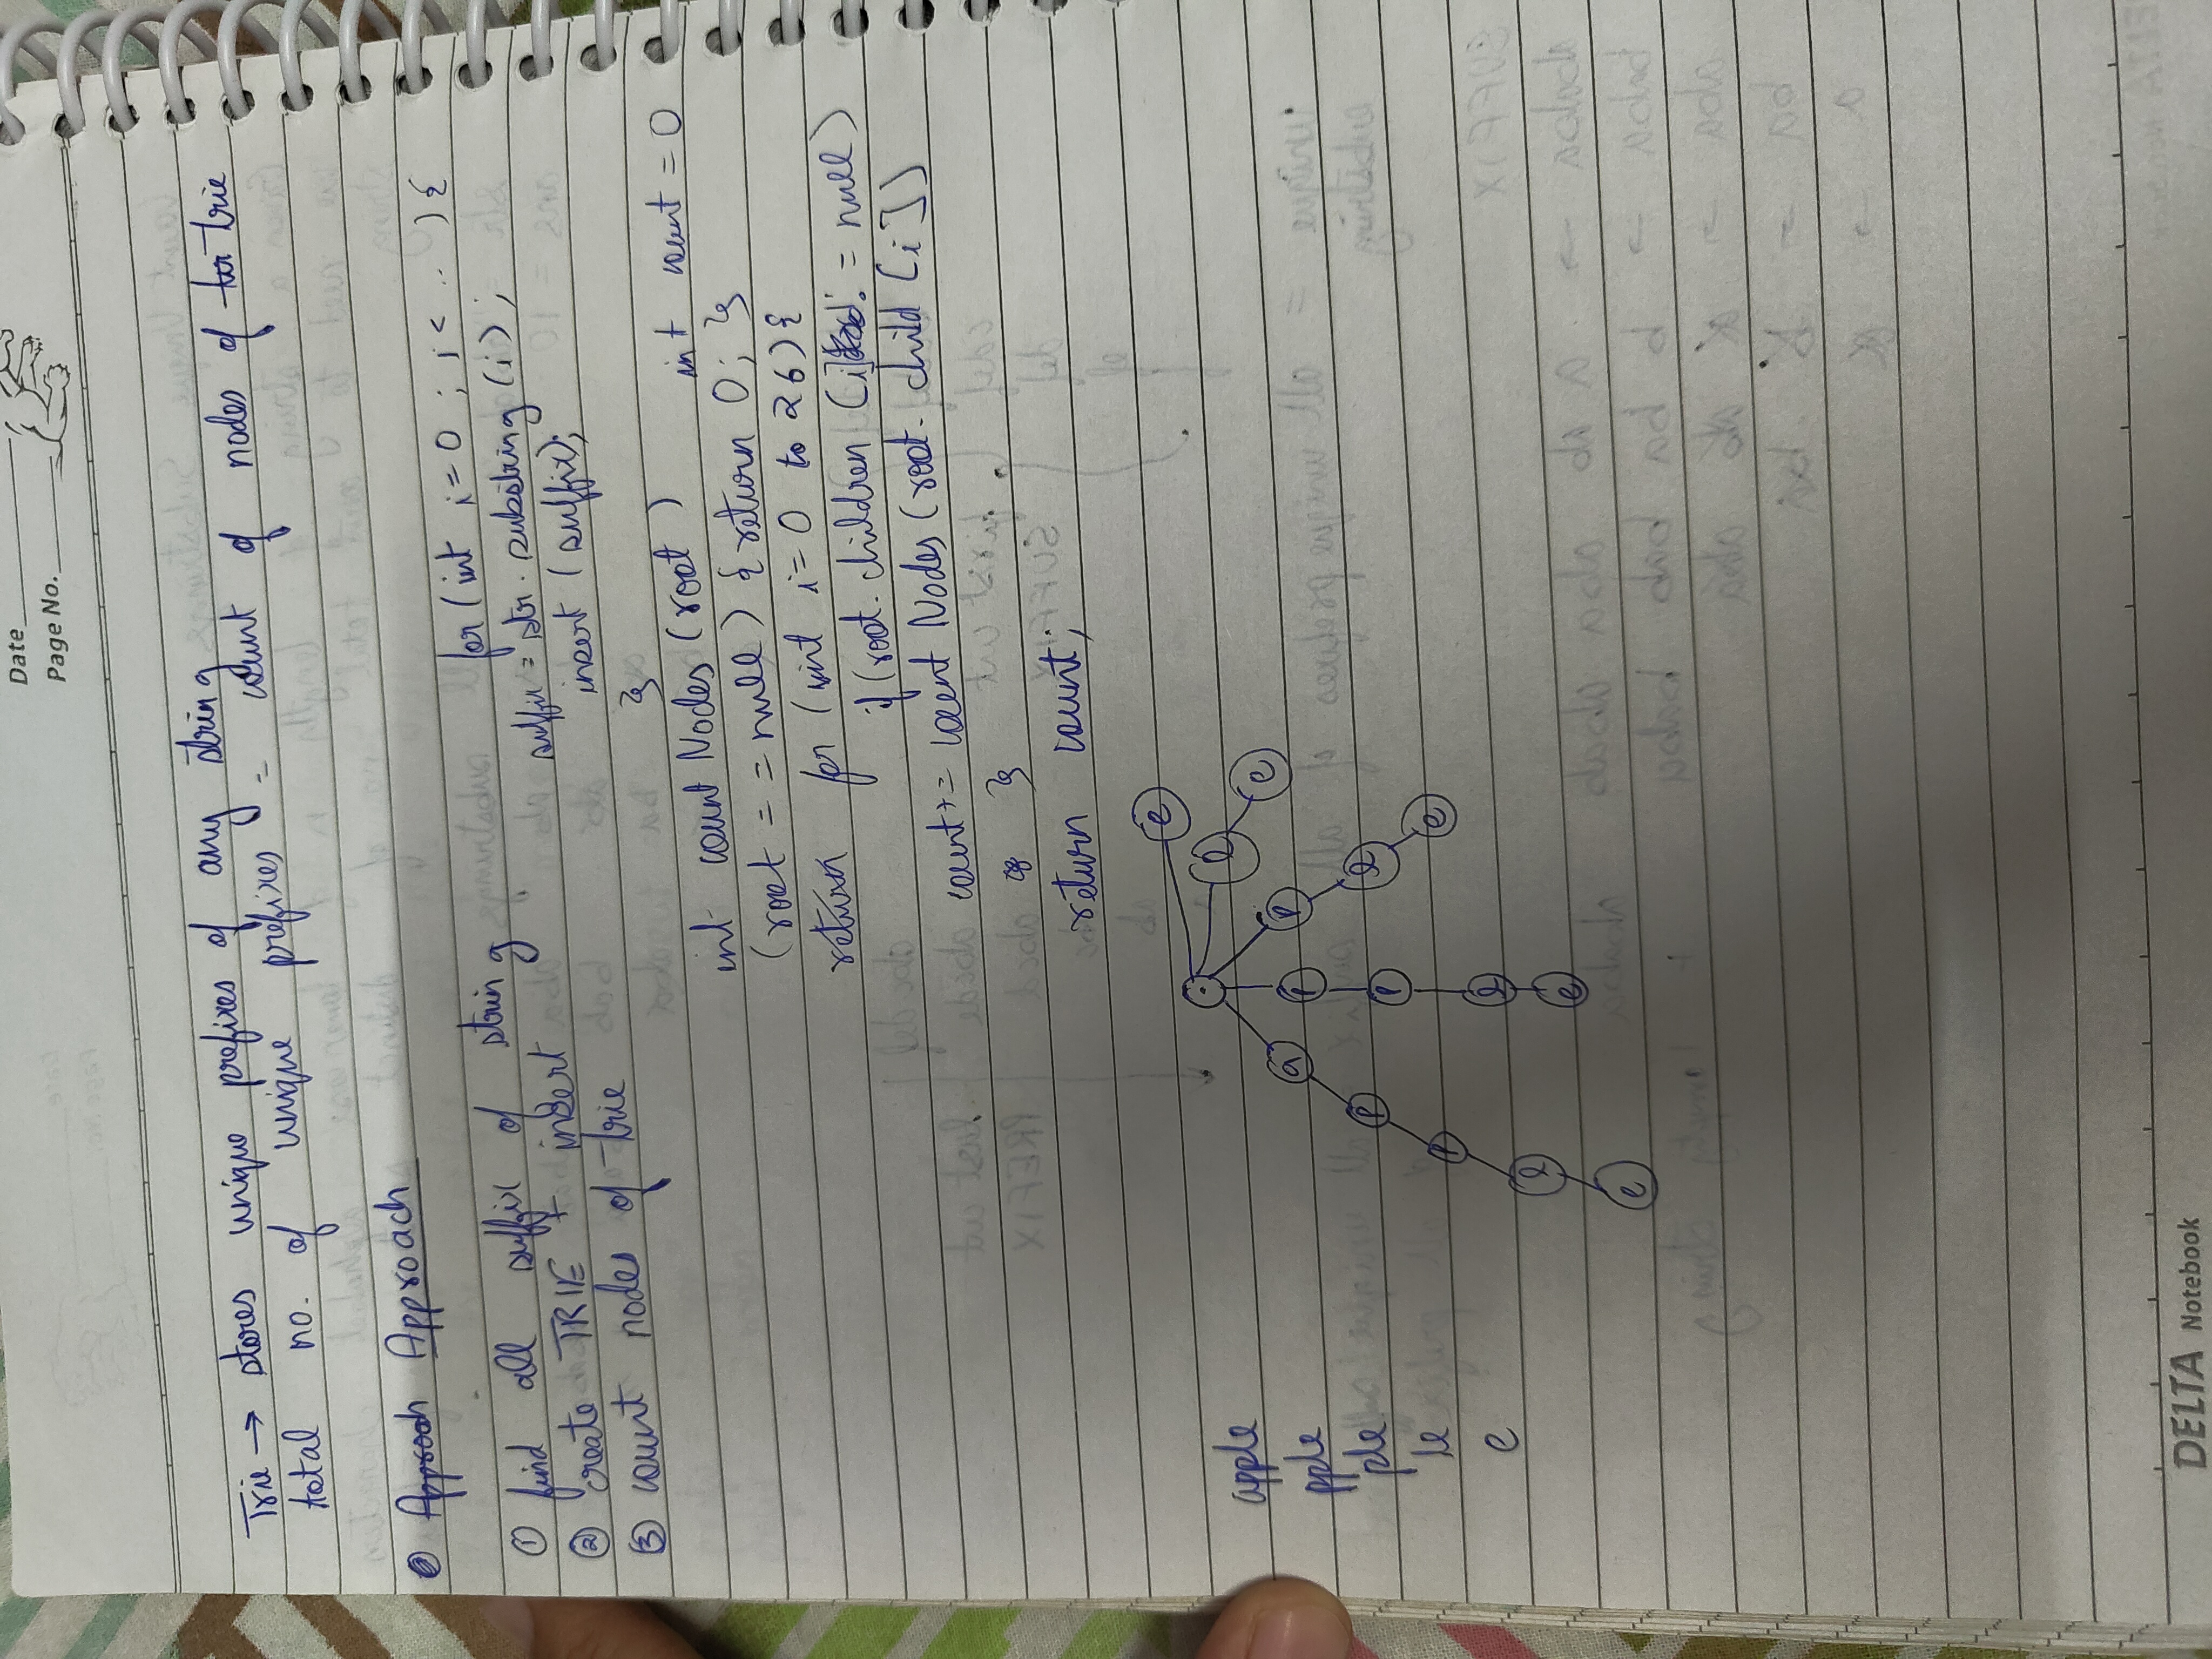 Date
Page No.
Trie → stores unique prefixes of any string
total no. of unique prefixes = count of nodes of trie
Approach
① find all suffix of string
② create TRIE + insert
③ count nodes of trie
for (int i=0; i< .. ) {
suffix = str. substring (i);
insert (suffix);
}
int count Nodes (root) int count = 0
(root == null) { return 0; }
return for (int i=0 to 26) {
if (root. children [i] != null)
count += count Nodes (root. child [i])
}
return count;
apple
pple
ple
le
e
e
l e
p l e
p p l e
a p p l e
DELTA Notebook